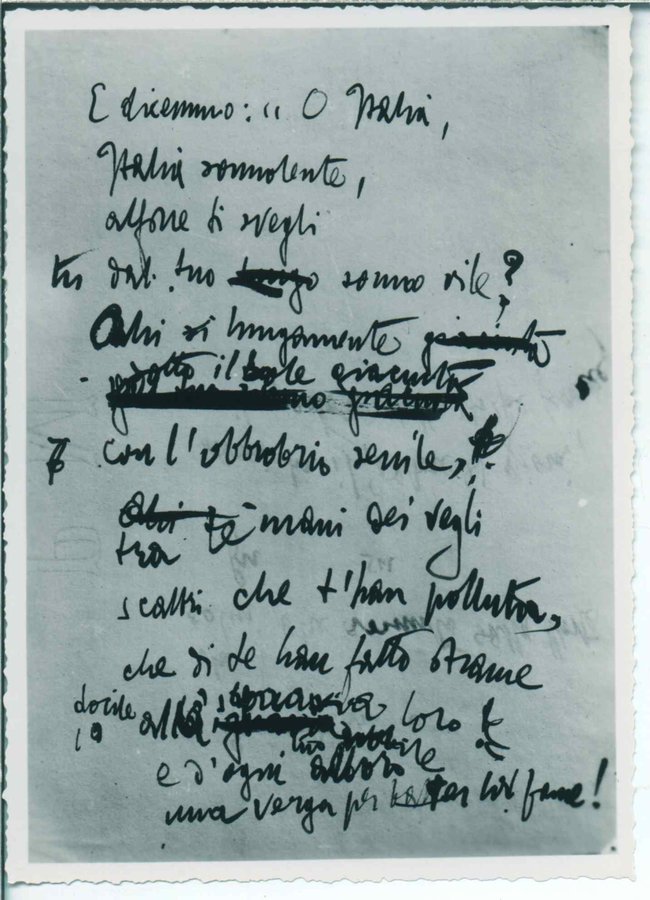 E dicemmo: “ O Italia,
Italia sonnolente,
alfine ti svegli
tu dal tuo sonno vile?
Ahi sì lungamente
giaciuta
con l'obbrobrio senile,
tra le mani dei vegli
scaltri che t'han polluta,
che di te han fatto strame
docile alla loro
e d'ogni
una verga per fame!